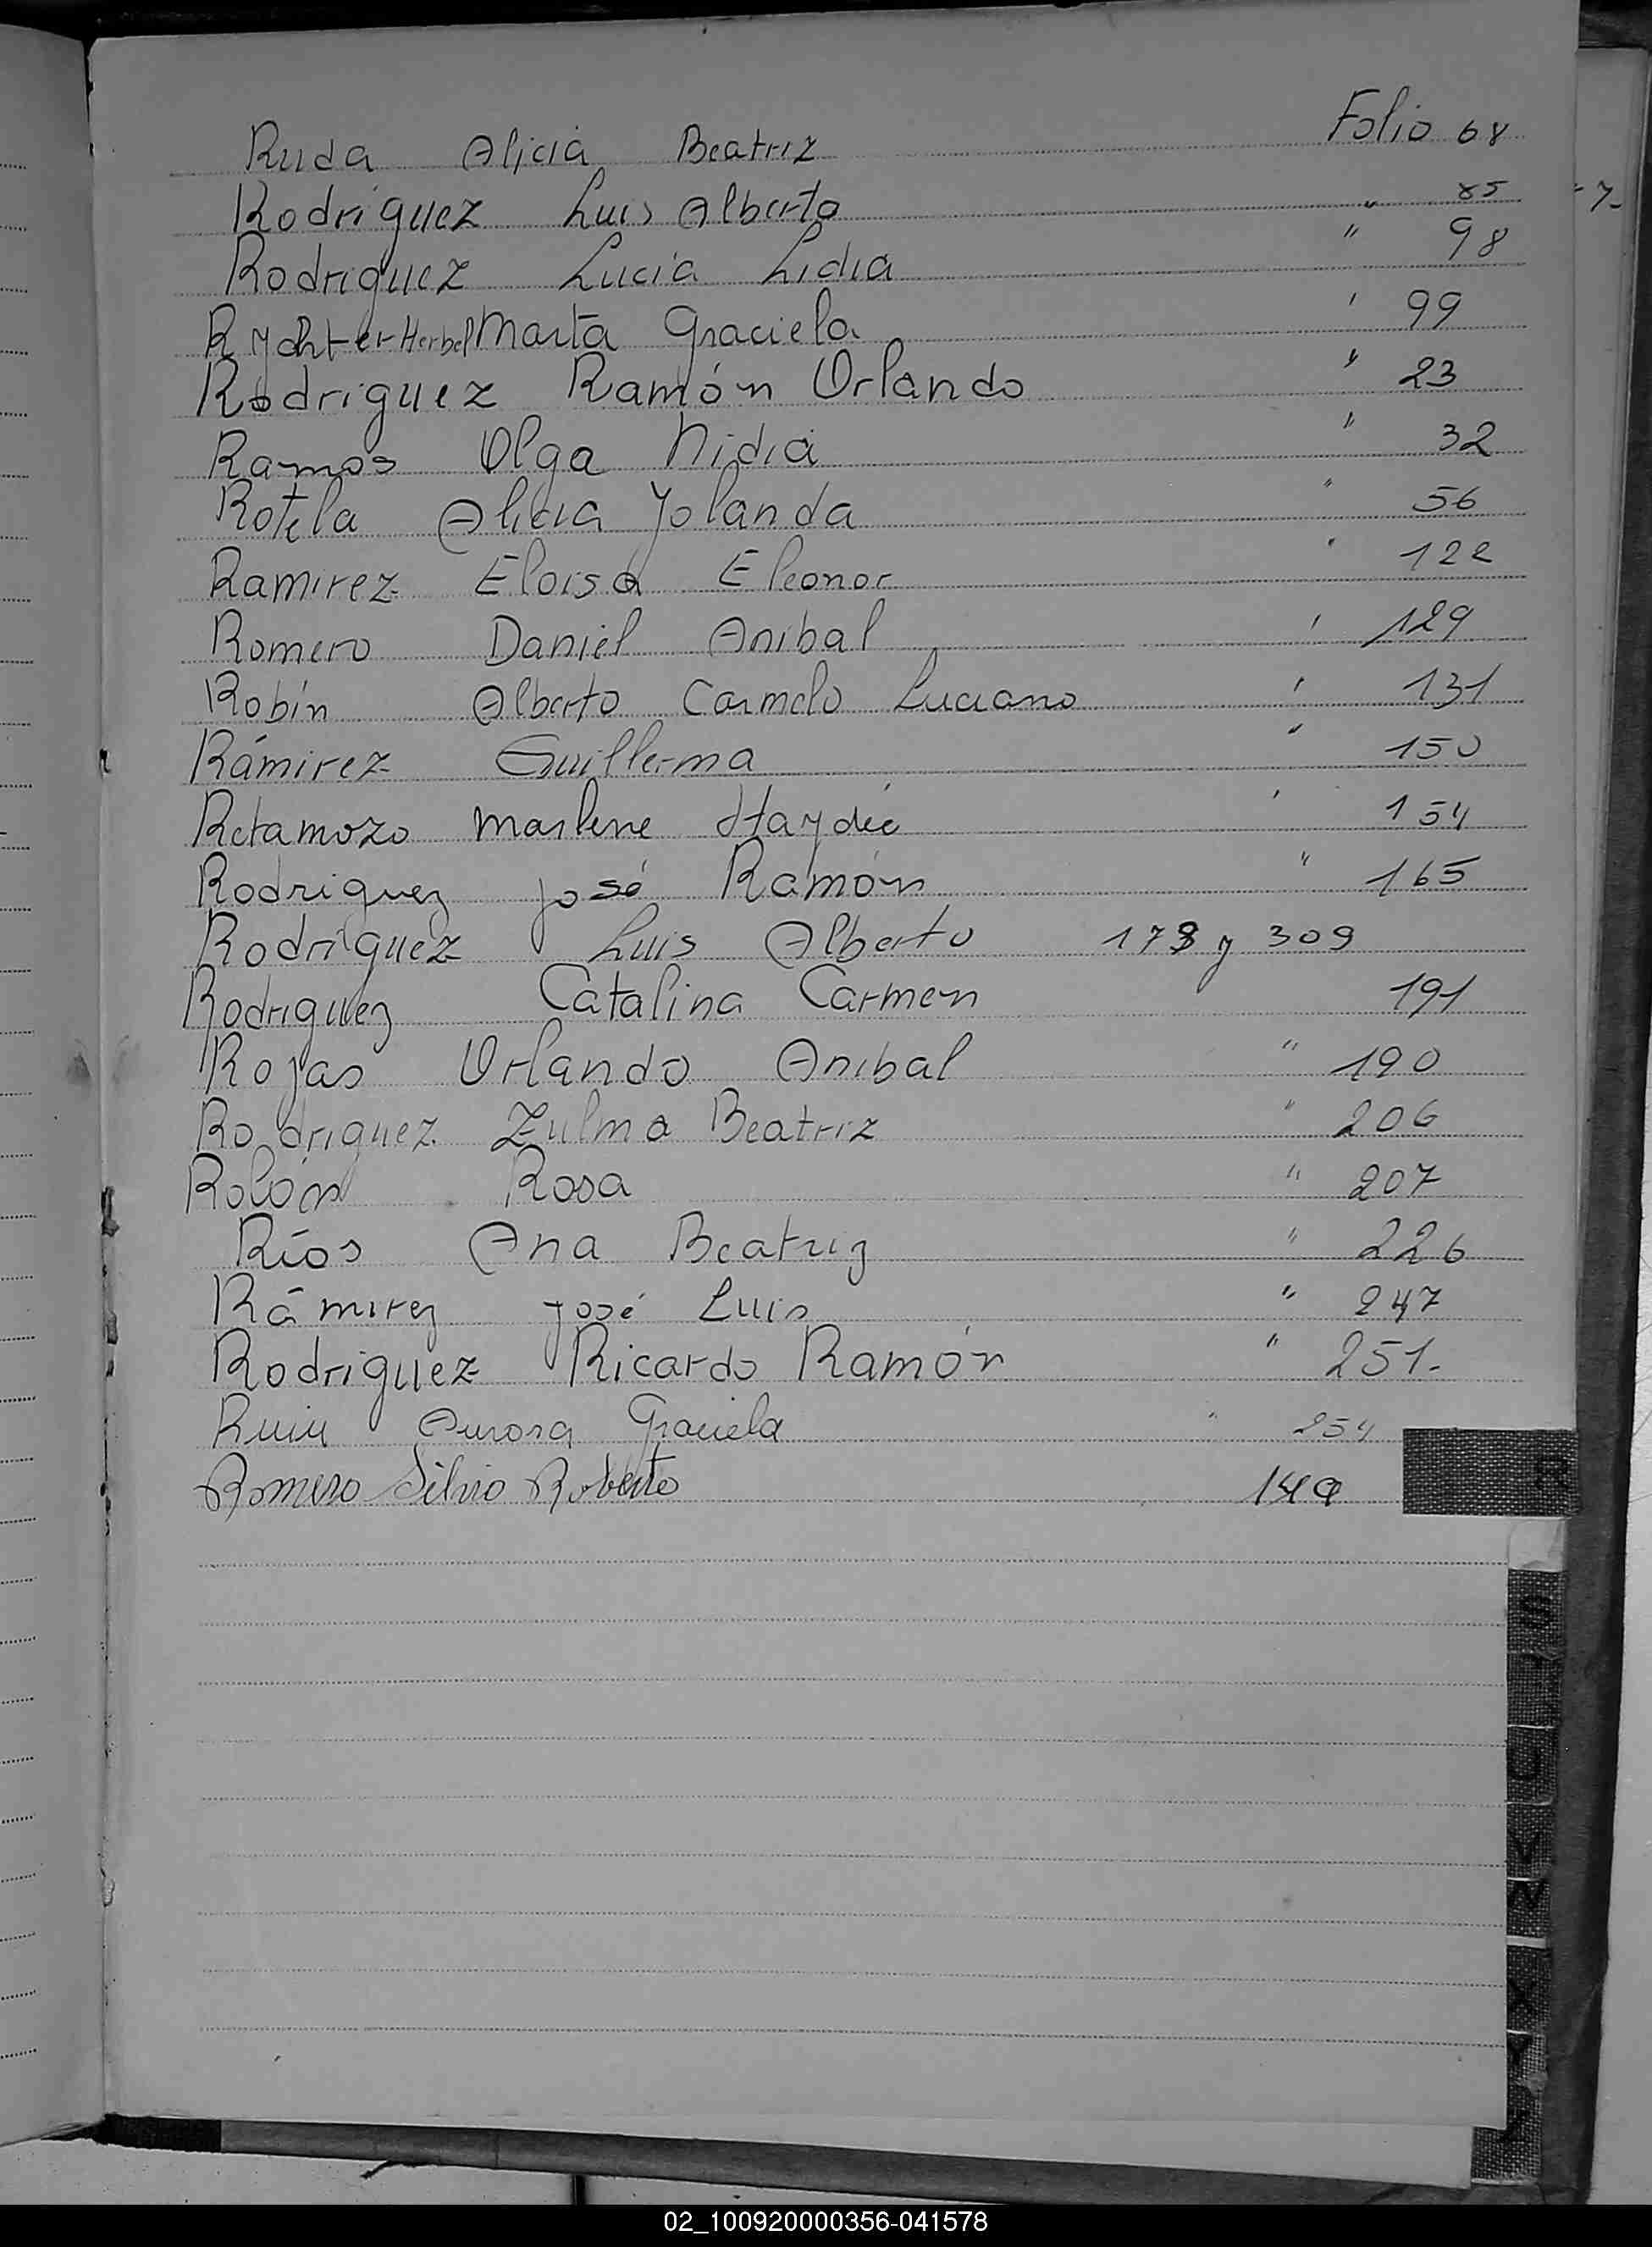 Ruda Alicia Beatriz Folio 68
Rodriguez Luis Alberto " 85
Rodriguez Lucia Lidia " 98
Rychter Herbel Marta Graciela ' 99
Rodriguez Ramón Orlando " 23
Ramos Olga Nidia " 32
Rotela Alicia Yolanda " 56
Ramirez Eloisa Eleonor " 122
Romero Daniel Anibal ' 129
Robín Alberto Carmelo Luciano ' 131
Rámirez Guillerma " 150
Retamozo Marlene Haydée ' 154
Rodriguez José Ramón " 165
Rodriguez Luis Alberto y 309
Rodriguez Catalina Carmen 191
Rojas Orlando Anibal " 190
Rodriguez Zulma Beatriz " 206
Rolón Rosa " 207
Ríos Ana Beatriz " 226
Rámirez José Luis " 247
Rodriguez Ricardo Ramón " 251.-
Aurora Graciela " 254
Romero Silvio Roberto
R
S
U
V
X
Y
02_100920000356-041578